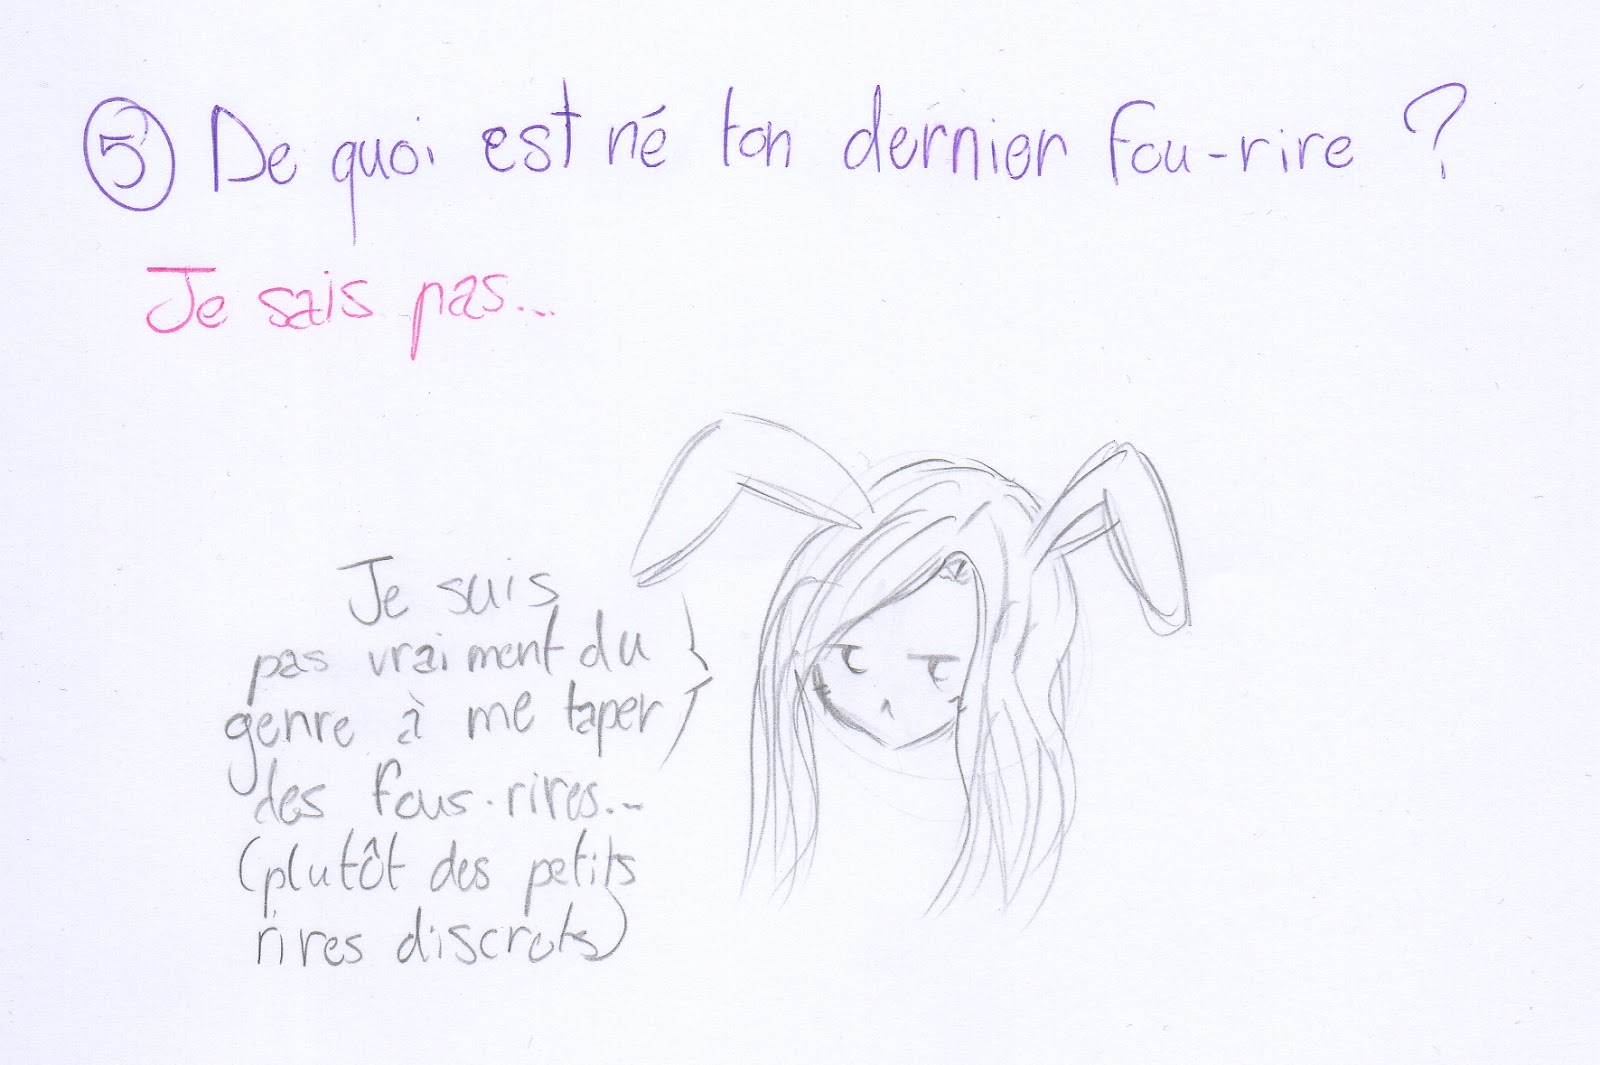 5 De quoi est né ton dernier fou-rire ?
Je sais pas...
Je suis
pas vraiment du
genre à me taper
des fous-rires...
(plutôt des petits
rires discrets)